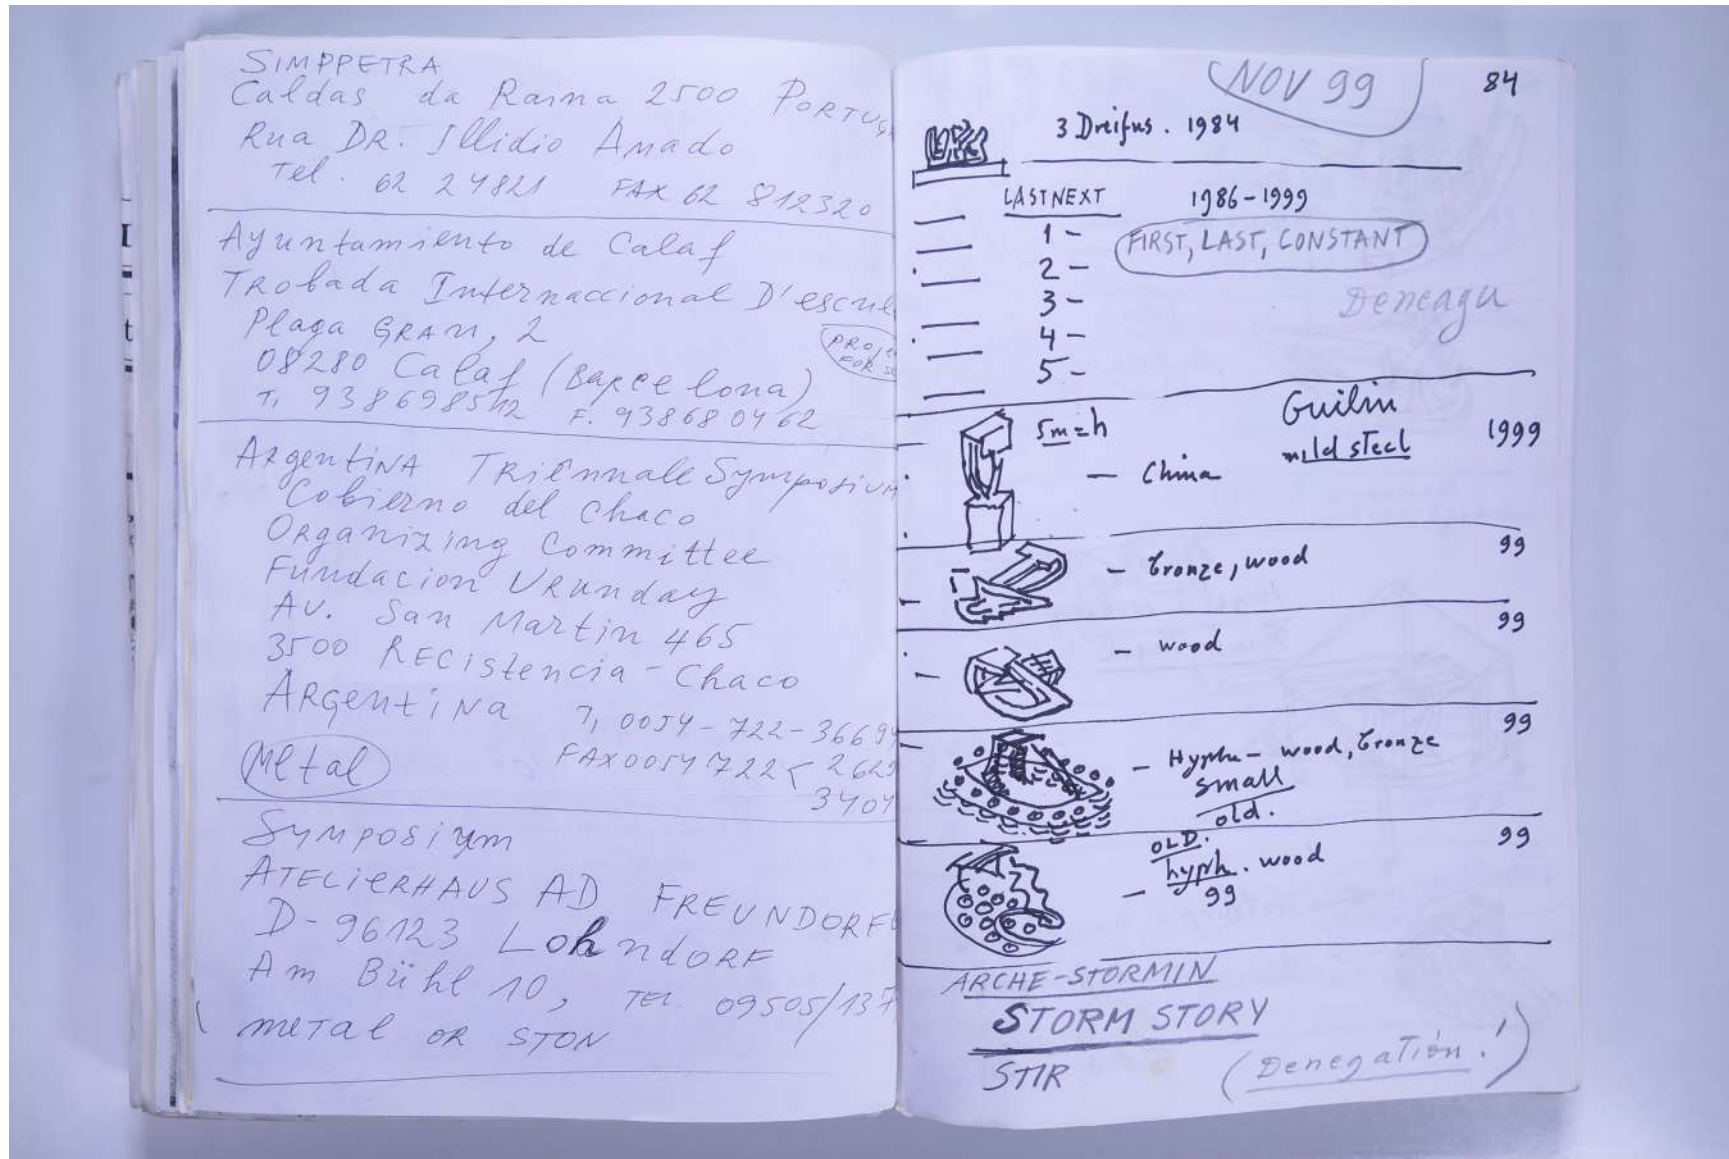 SIMPPETRA
Caldas da Raina 2500 PORTUG
Rua DR. Illidio Amado
Tel. 62 24821 FAX 62 812320
Ayuntamiento de Calaf
TRobada Internaccional D'escul
Plaça GRAN, 2
PROje
FOR SC
08280 Calaf (Barcelona)
T. 938698512 F. 938680462
ArgentiNA Triennale Symposium
Cobierno del Chaco
Organizing Committee
Fundacion Urunday
AV. San Martin 465
3500 RECistencia - Chaco
ArgentiNA T, 0054-722-36694
Metal
FAX 0054 722 < 2629
3404
Symposiym
ATELiERHAUS AD FREUNDORF
D-96123 LohndORF
Am Bühl 10, TEL. 09505/137
metal OR STON
NOV 99
84
3 Dreifus. 1984
LASTNEXT 1986-1999
1 - FIRST, LAST, CONSTANT
2 -
3 - Deneagu
4 -
5 -
5m=h Guilin 1999
mild steel
- China
- bronze, wood 99
- wood 99
99
- Hyphu- wood, bronze
small
old.
OLD. 99
- hyph. wood
99
ARCHE-STORMIN
STORM STORY
STIR (Denegatión!)